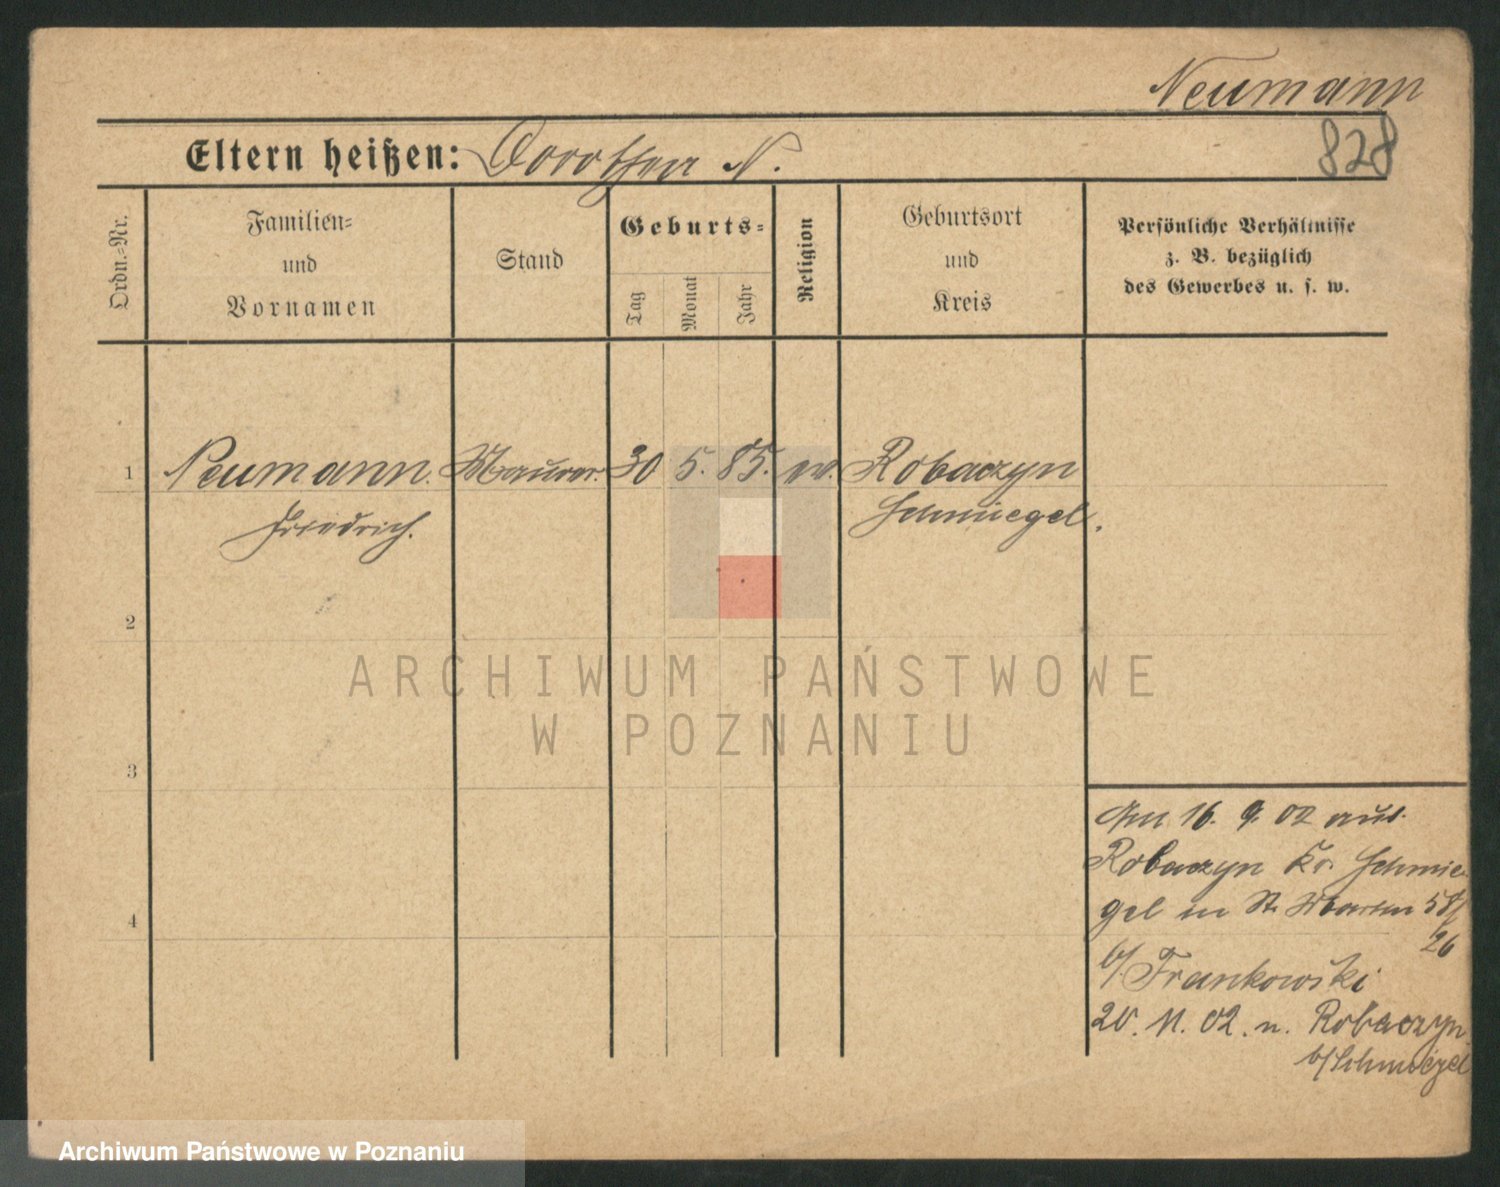 Neumann
828
Eltern heißen: Dorothea N.
Ordn.-Nr.
Familien-
und
Vornamen
Stand
Geburts-
Tag
Monat
Jahr
Religion
Geburtsort
und
Kreis
Persönliche Verhältnisse
z. B. bezüglich
des Gewerbes u. s. w.
1 Neumann. Maurer. 30 5. 85. ev. Robaczyn
Friedrich. Schmiegel.
2
3
4
ARCHIWUM PAŃSTWOWE
W POZNANIU
Am 16. 9. 02 aus.
Robaczyn Kr. Schmie-
gel in St. Martin 58/
26
b/ Frankowski
20. 11. 02. n. Robaczyn
b/Schmiegel
Archiwum Państwowe w Poznaniu